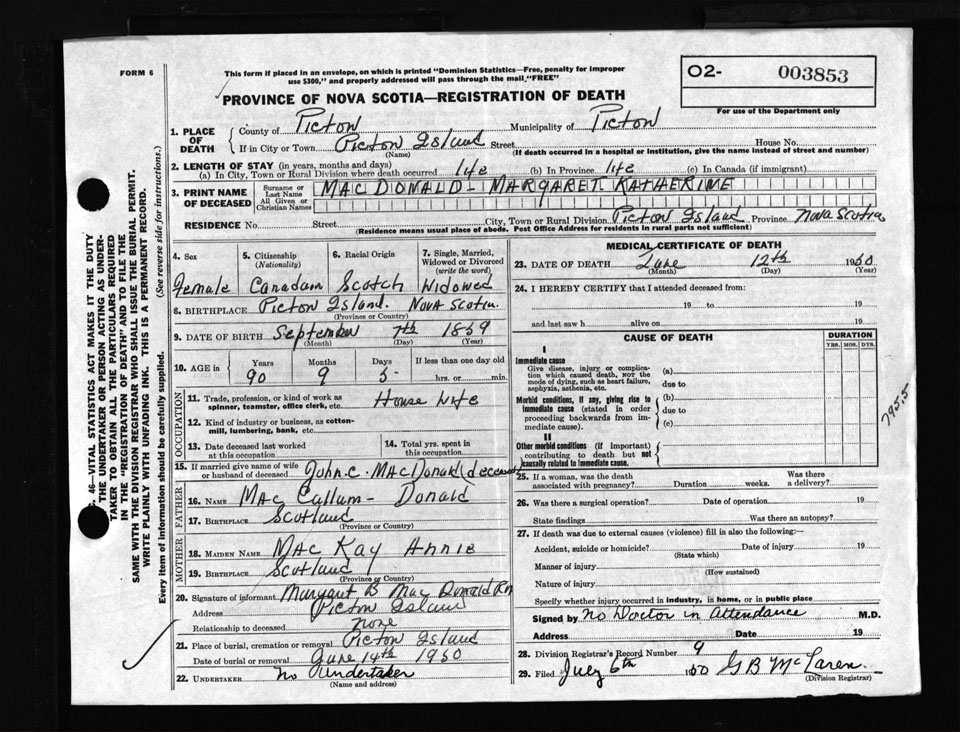 FORM 6
This form if placed in an envelope, on which is printed "Dominion Statistics—Free, penalty for improper
use $300," and properly addressed will pass through the mail "FREE"
O2- 003853
For use of the Department only
PROVINCE OF NOVA SCOTIA—REGISTRATION OF DEATH
1. PLACE OF DEATH
County of Picton Municipality of Picton
If in City or Town Picton Island Street House No.
(Name) (If death occurred in a hospital or institution, give the name instead of street and number)
2. LENGTH OF STAY (in years, months and days)
(a) In City, Town or Rural Division where death occurred life (b) In Province life (c) In Canada (if immigrant)
3. PRINT NAME OF DECEASED
Surname or Last Name
All Given or Christian Names
MACDONALD - MARGARET KATHERINE
RESIDENCE No. Street City, Town or Rural Division Picton Island Province Nova Scotia
(Residence means usual place of abode. Post Office Address for residents in rural parts not sufficient)
4. Sex 5. Citizenship (Nationality) 6. Racial Origin 7. Single, Married, Widowed or Divorced (write the word)
Female Canadian Scotch Widowed
8. BIRTHPLACE Picton Island. Nova Scotia.
(Province or Country)
9. DATE OF BIRTH September 7th 1859
(Month) (Day) (Year)
10. AGE in Years Months Days If less than one day old
90 9 5 hrs. or min.
OCCUPATION
11. Trade, profession, or kind of work as spinner, teamster, office clerk, etc. House Wife
12. Kind of industry or business, as cotton-mill, lumbering, bank, etc.
13. Date deceased last worked at this occupation
14. Total yrs. spent in this occupation
15. If married give name of wife or husband of deceased John. C. MacDonald (deceased)
FATHER
16. NAME Mac Callum - Donald
17. BIRTHPLACE Scotland
(Province or Country)
MOTHER
18. MAIDEN NAME Mac Kay Annie
19. BIRTHPLACE Scotland
(Province or Country)
20. Signature of informant Margaret B Mac Donald RN
Address Picton Island
Relationship to deceased none
21. Place of burial, cremation or removal Picton Island
Date of burial or removal June 14th 1950
22. UNDERTAKER No Undertaker
(Name and address)
MEDICAL CERTIFICATE OF DEATH
23. DATE OF DEATH June 12th 1950
(Month) (Day) (Year)
24. I HEREBY CERTIFY that I attended deceased from:
19 to 19
and last saw h alive on 19
CAUSE OF DEATH
DURATION
YRS. MOS. DYS.
I
Immediate cause
Give disease, injury or complication which caused death, not the mode of dying, such as heart failure, asphyxia, asthenia, etc.
(a)
due to
Morbid conditions, if any, giving rise to immediate cause (stated in order proceeding backwards from immediate cause).
(b)
due to
(c)
795.5
II
Other morbid conditions (if important) contributing to death but not causally related to immediate cause.
25. If a woman, was the death associated with pregnancy? Duration weeks. Was there a delivery?
26. Was there a surgical operation? Date of operation 19
State findings Was there an autopsy?
27. If death was due to external causes (violence) fill in also the following:—
Accident, suicide or homicide? Date of injury 19
(State which)
Manner of injury
(How sustained)
Nature of injury
Specify whether injury occurred in industry, in home, or in public place
Signed by No Doctor in Attendance M.D.
Address Date 19
28. Division Registrar's Record Number 9
29. Filed July 6th 1950 G B McLaren.
(Division Registrar)
S. 46—VITAL STATISTICS ACT MAKES IT THE DUTY
THE UNDERTAKER OR PERSON ACTING AS UNDER-
TAKER TO OBTAIN ALL THE PARTICULARS REQUIRED
IN THE "REGISTRATION OF DEATH" AND TO FILE THE
SAME WITH THE DIVISION REGISTRAR WHO SHALL ISSUE THE BURIAL PERMIT.
WRITE PLAINLY WITH UNFADING INK. THIS IS A PERMANENT RECORD.
Every item of information should be carefully supplied. (See reverse side for instructions.)